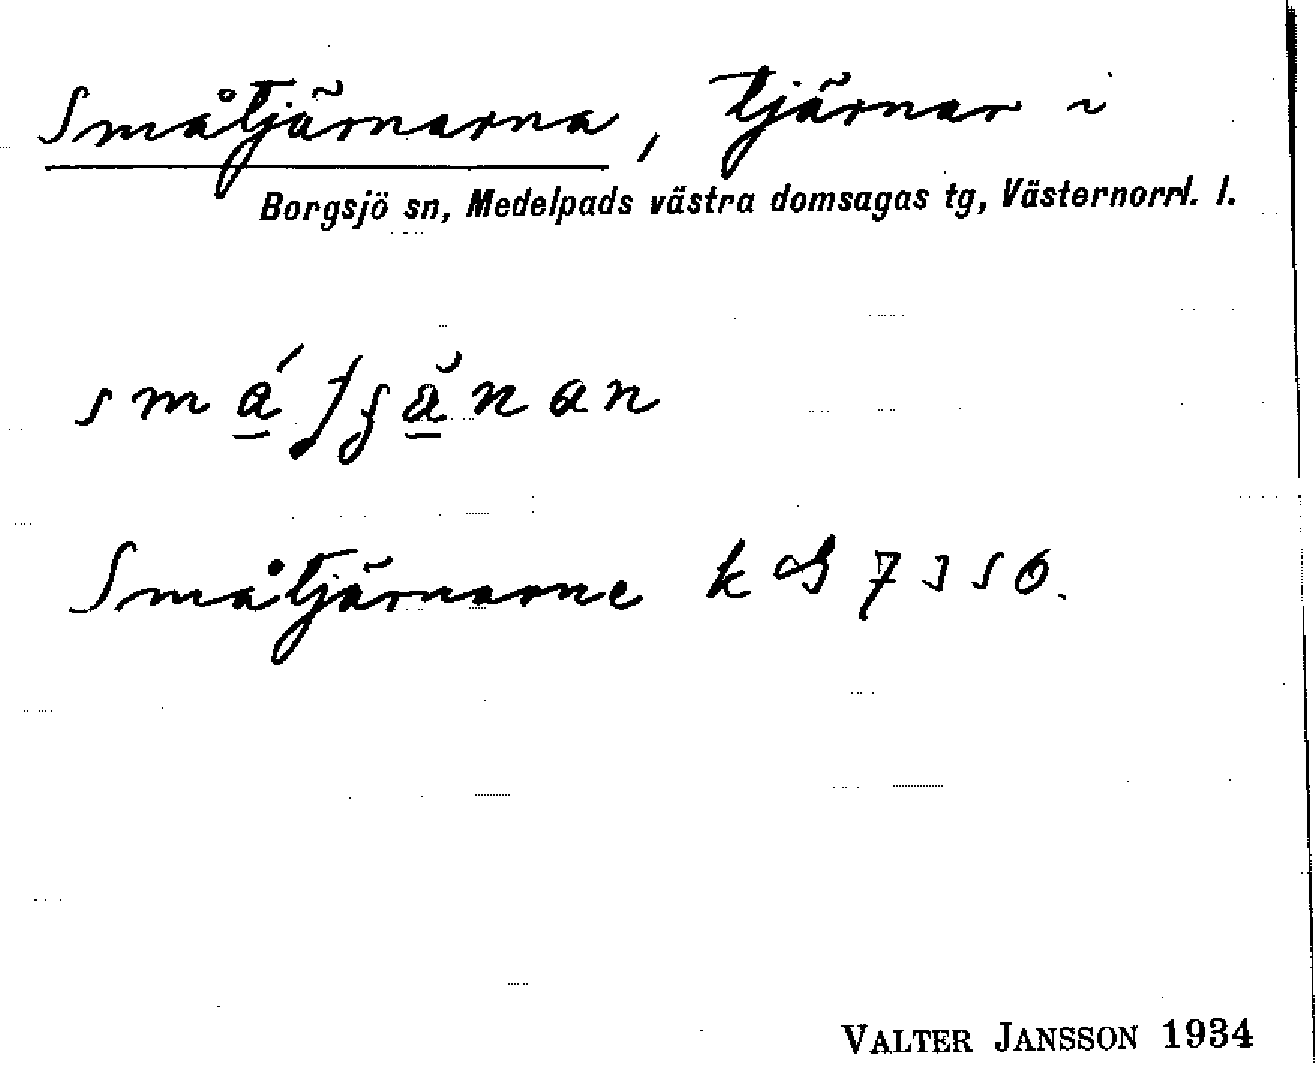 Småtjärnarna, tjärnar i
Borgsjö sn, Medelpads västra domsagas tg, Västernorrl. l.
Småtjärnarne
VALTER JANSSON 1934